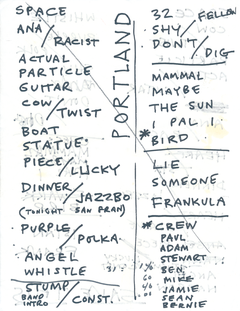 SPACE
ANA / RACIST
ACTUAL
PARTICLE
GUITAR
COW / TWIST
BOAT
STATUE
PIECE / LUCKY
DINNER / JAZZBO
(TONIGHT SAN FRAN)
PURPLE / POLKA
ANGEL
WHISTLE
STUMP / CONST.
BAND INTRO
PORTLAND
32 / FELLOW
SHY /
DON'T / DIG
MAMMAL
MAYBE
THE SUN
1 PAL 1
* BIRD
LIE
SOMEONE
FRANKULA
* CREW
PAUL
ADAM
STEWART
BEN
MIKE
JAMIE
SEAN
BERNIE